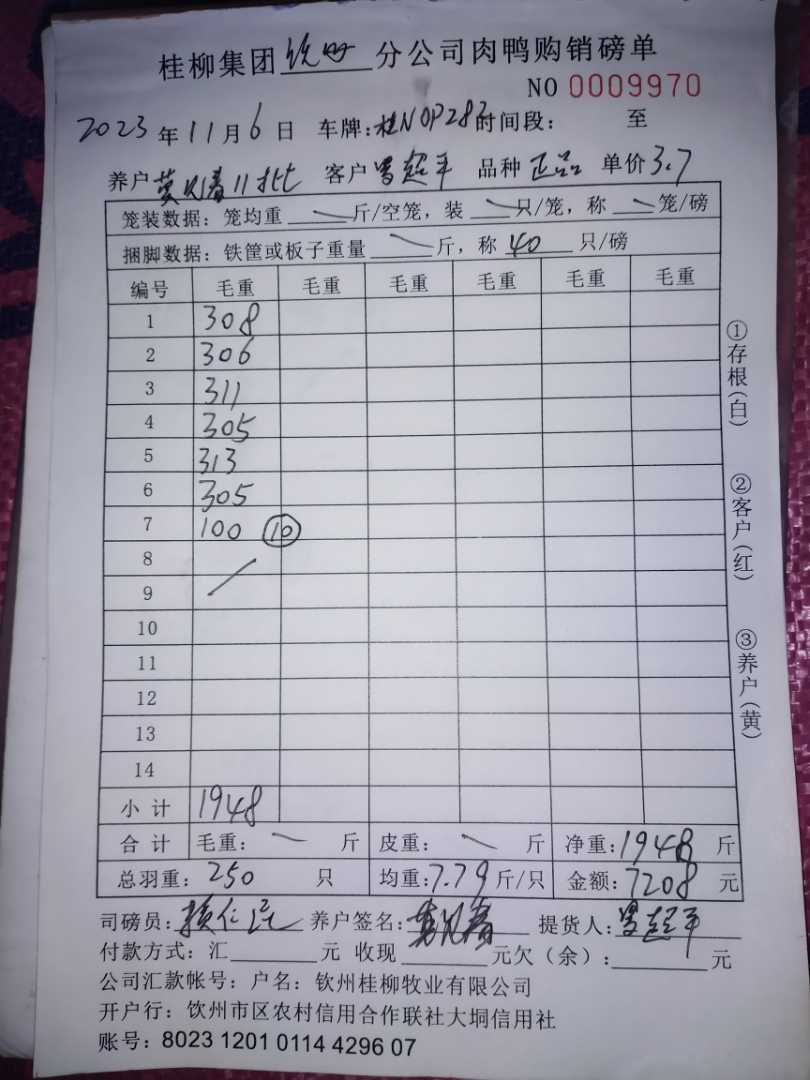 桂柳集团钦州分公司肉鸭购销磅单
NO 0009970
2023年11月6日 车牌:桂N0P283时间段: 至
养户 黄 春11批 客户 罗超平 品种 正品 单价3.7
笼装数据:笼均重 斤/空笼,装 只/笼,称 笼/磅
捆脚数据:铁筐或板子重量 斤,称 40 只/磅
编号 毛重 毛重 毛重 毛重 毛重 毛重
1 308
2 306
3 311
4 305
5 313
6 305
7 100 10
8
9
10
11
12
13
14
小计 1948
合计 毛重: 斤 皮重: 斤 净重:1948 斤
总羽重: 250 只 均重:7.79 斤/只 金额:7208 元
司磅员: 养户签名: 提货人:罗超平
付款方式:汇 元 收现 元欠(余): 元
公司汇款帐号:户名:钦州桂柳牧业有限公司
开户行:钦州市区农村信用合作联社大垌信用社
账号:8023 1201 0114 4296 07
①存根(白)
②客户(红)
③养户(黄)